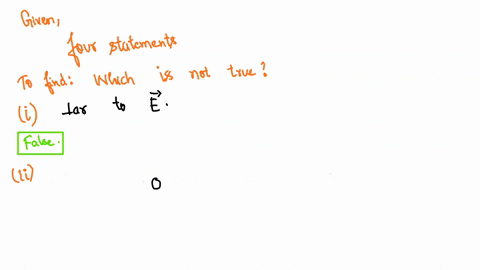 Given,
four statements
To find: Which is not true?
(i) ⊥ar to E⃗.
False.
(ii)
0